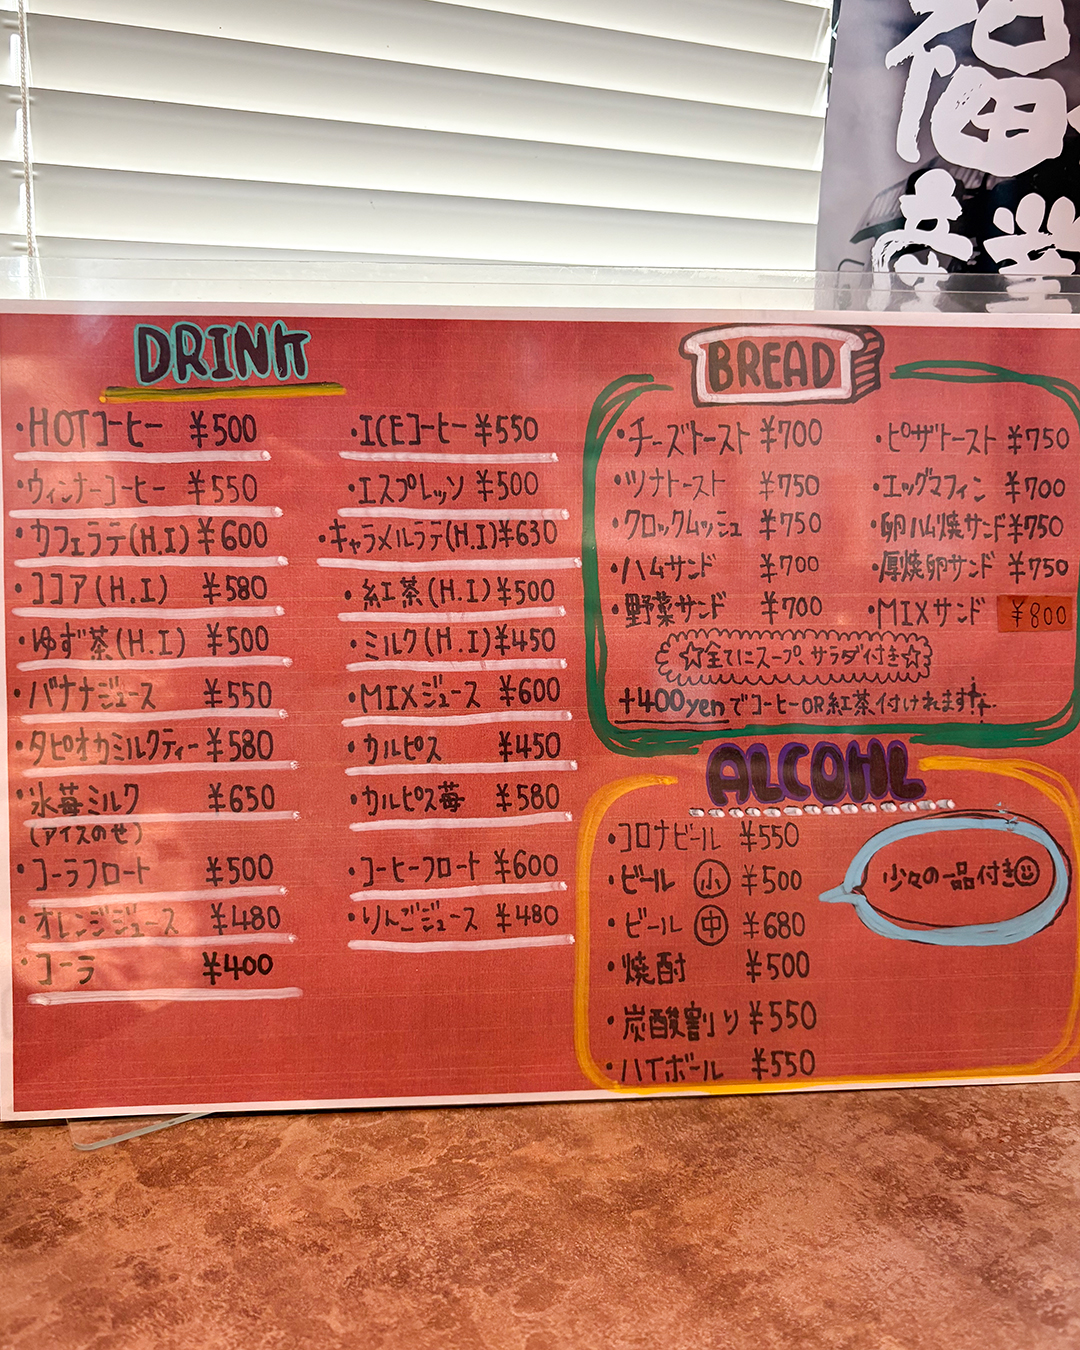 福
産業
DRINK
・HOTコーヒー ¥500
・ウィンナーコーヒー ¥550
・カフェラテ(H.I) ¥600
・ココア(H.I) ¥580
・ゆず茶(H.I) ¥500
・バナナジュース ¥550
・タピオカミルクティー ¥580
・氷苺ミルク ¥650
(アイスのせ)
・コーラフロート ¥500
・オレンジジュース ¥480
・コーラ ¥400
・ICEコーヒー ¥550
・エスプレッソ ¥500
・キャラメルラテ(H.I) ¥630
・紅茶(H.I) ¥500
・ミルク(H.I) ¥450
・MIXジュース ¥600
・カルピス ¥450
・カルピス苺 ¥580
・コーヒーフロート ¥600
・りんごジュース ¥480
BREAD
・チーズトースト ¥700
・ツナトースト ¥750
・クロックムッシュ ¥750
・ハムサンド ¥700
・野菜サンド ¥700
・ピザトースト ¥750
・エッグマフィン ¥700
・卵ハム焼サンド ¥750
・厚焼卵サンド ¥750
・MIXサンド ¥800
☆全てにスープ、サラダ付き☆
+400yenでコーヒーOR紅茶付けれます!!
ALCOHL
・コロナビール ¥550
・ビール 小 ¥500
・ビール 中 ¥680
・焼酎 ¥500
・炭酸割り ¥550
・ハイボール ¥550
少々の一品付き☺